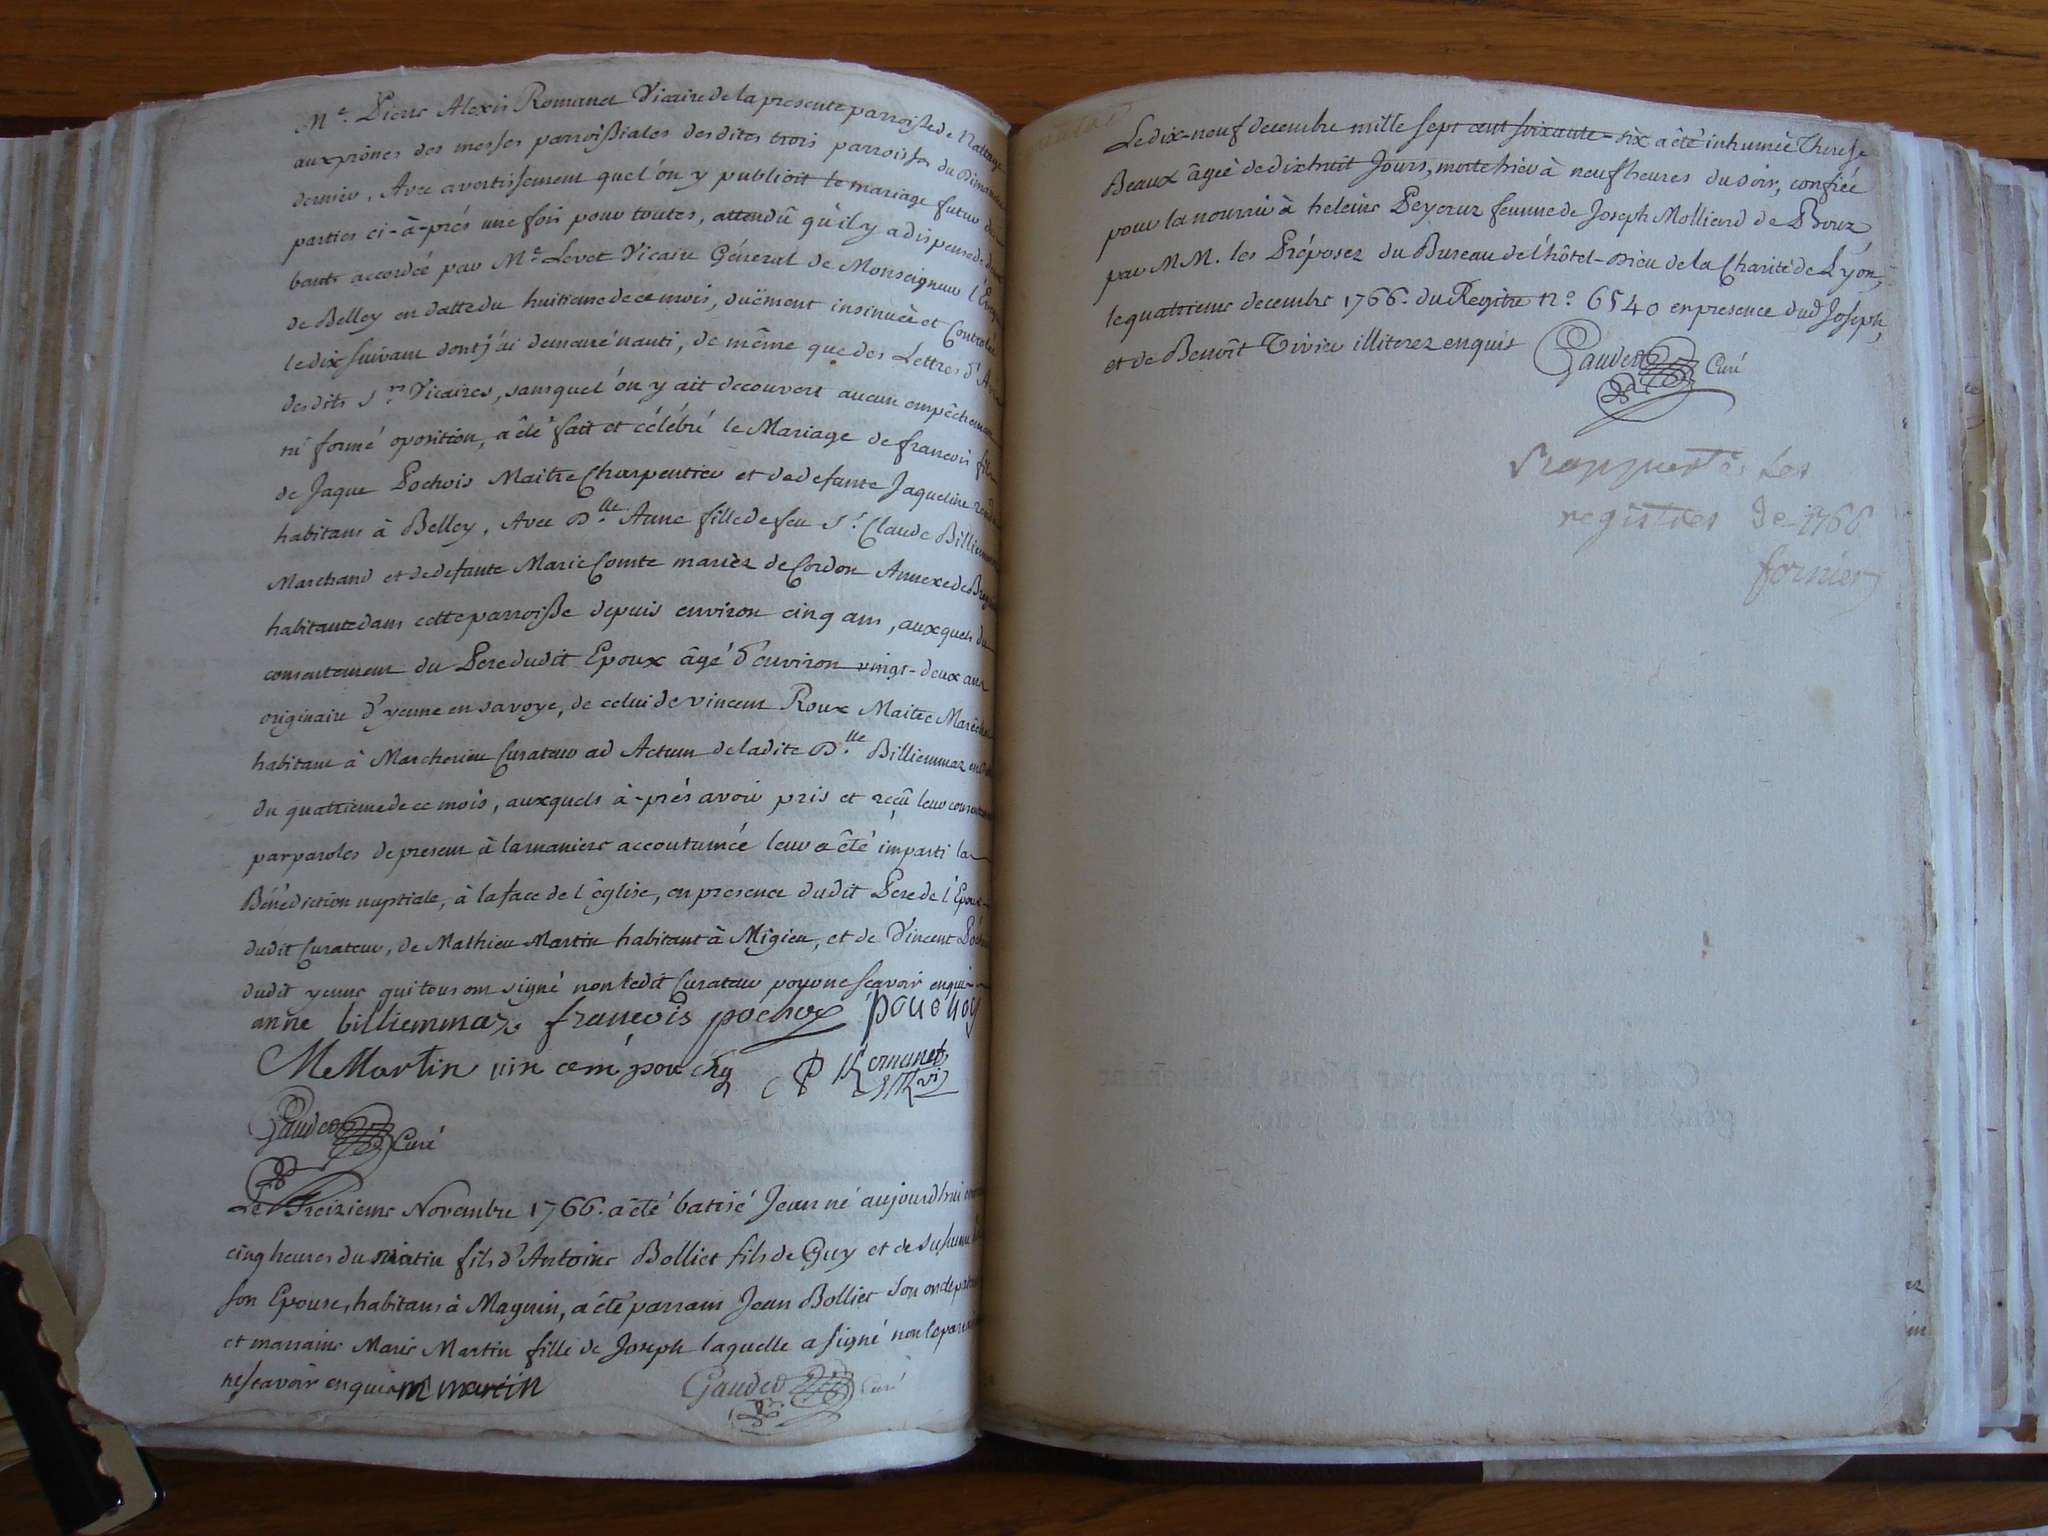 Me. Pierre Alexis Romanet Vicaire de la presente parroisse de Nattage
aux prônes des messes parroissiales desdites trois parroisses du Dimanche
dernier, Avec avertissement que l'ón y publioit le mariage futur des
parties ci-à-prés une fois pour toutes, attendû qu'il y a dispense de deux
bants accordée par Me. Levet Vicaire Général de Monseigneur l'Evêque
de Belley en datte du huitieme de ce mois, duëment insinuée et Controlée
le dix suivant dont j'ai demeuré nanti, de même que des Lettres d'
desdits Srs Vicaires, sans que l'ón y ait decouvert aucun empêchement
ni formé oposition, a êté fait et célébré le Mariage de francois fils
de Jaque Pochois Maitre Charpentier et de defante Jaqueline
habitans à Belley, Avec Dlle. Anne fille de feu Sr. Claude Billiemmaz
Marchand et de defante Marie Comte mariez de Cordon Annexe de
habitante dans cette parroisse depuis environ cinq ans, auxquels du
consentement du Pere dudit Epoux âgé d'environ vingt-deux ans
originaire d'yenne en savoye, de celui de vincent Roux Maitre Marêchal
habitant à Marchenieu Curateur ad Actum de ladite Dlle. Billiemmaz
du quatrieme de ce mois, auxquels à-prés avoir pris et reçû leur consentement
par paroles de present à la maniere accoutumée leur a êté imparti la
Bénédiction nuptiale, à la face de l'église, en presence dudit Pere de l'Epoux
dudit Curateur, de Mathieu Martin habitant à Migieu, et de Vincent
dudit yenne qui tous ont signé non ledit Curateur pour ne scavoir enquis
anne billiemmaz francois pochoy pouchoy
M Martin vincent pouchoy P Romanet vi
Gaudet Curé
Le Treizieme Novembre 1766. a êté batisé Jean né aujourd'hui
cinq heures du matin fils d'Antoine Bolliet fils de Guy et de Susanne
son Epouse, habitans à Magnin, a êté parrain Jean Bolliet son oncle
et marraine Marie Martin fille de Joseph laquelle a signé non le parrain
ne scavoir enquis m martin Gaudet Curé
Le dix-neuf decembre mille sept cent soixante-six a êté inhumée Therese
Beaux âgée de dixhuit Jours, morte hier à neuf heures du soir, confiée
pour la nourrir à heleine Peyeruz femme de Joseph Molliard de Prouz
par MM. les Préposez du Bureau de l'hôtel-Dieu de la Charité de Lyon,
le quatrieme decembre 1766. du Regitre no. 6540 en presence dud Joseph,
et de Benoît Tivier illiterez enquis Gaudet Curé
Rapporté les
registres de 1766
fornier